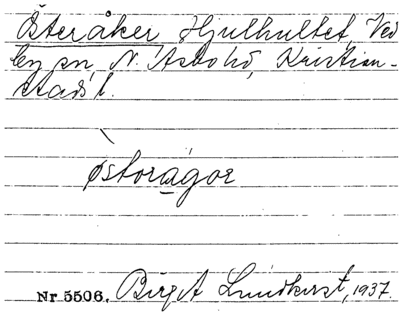 Österåker Hjulhultet, Ved
by sn N. Åsbo hd, Kristian-
stads l.
østorågor
Nr 5506. Birgit Lundkvist, 1937.